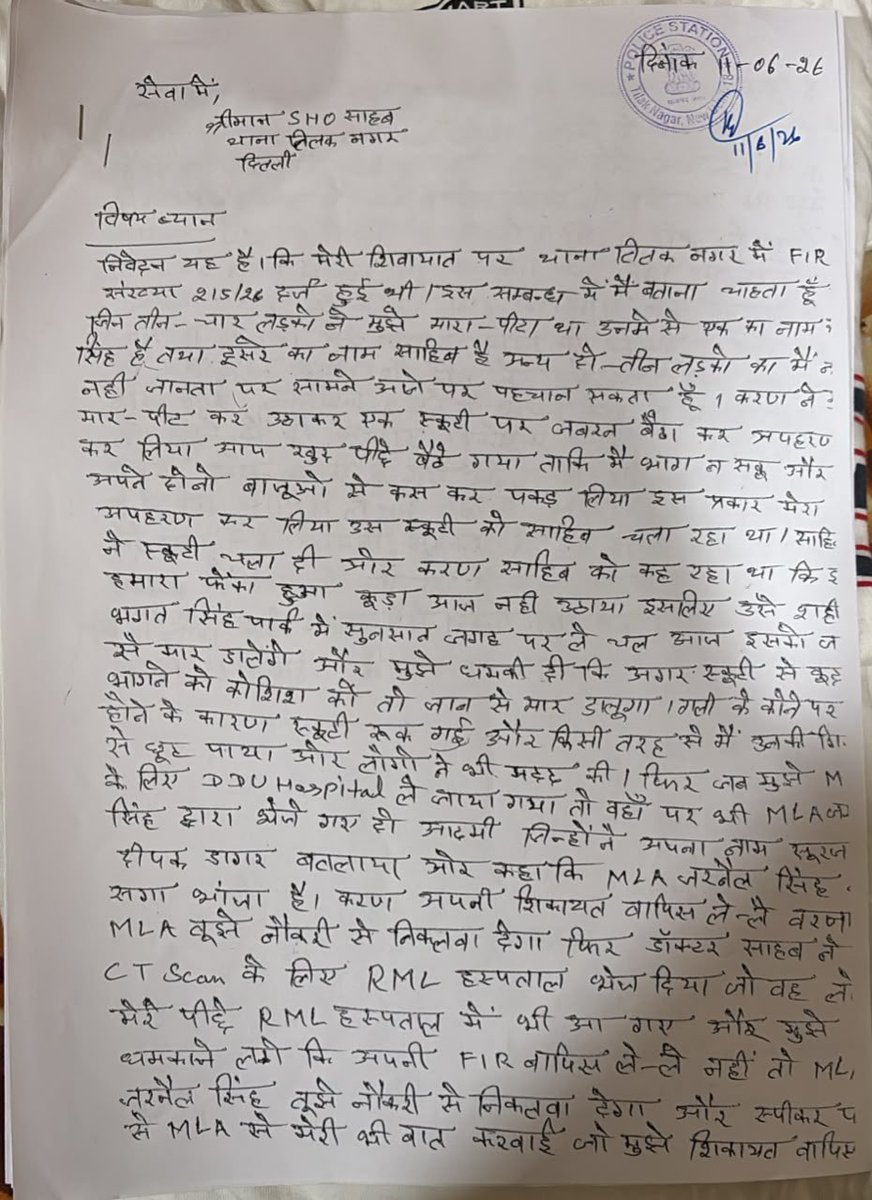 POLICE STATION
Tilak Nagar, New
दिनांक 11-06-26
11/6/26
सेवा में,
श्रीमान SHO साहब
थाना तिलक नगर
दिल्ली
विषय ब्यान
निवेदन यह है। कि मेरी शिकायात पर थाना तिलक नगर में FIR
संख्या 215/26 दर्ज हुई थी। इस सम्बन्ध में मैं बताना चाहता हूँ
जिन तीन-चार लड़को ने मुझे मारा-पीटा था उनमे से एक का नाम
सिंह है तथा दूसरे का नाम साहिब है अन्य दो-तीन लड़को का मैं
नही जानता पर सामने आने पर पहचान सकता हूँ। करण ने
मार-पीट कर उठाकर एक स्कूटी पर जबरन बैठा कर अपहरण
कर लिया आप खुद पीछे बैठ गया ताकि मै भाग न सकू और
अपने दोनो बाजूओ से कस कर पकड़ लिया इस प्रकार मेरा
अपहरण कर लिया उस स्कूटी को साहिब चला रहा था। साहि
ने स्कूटी चला दी और करण साहिब को कह रहा था कि इ
हमारा फेंका हुआ कूड़ा आज नही उठाया इसलिए उसे शही
भगत सिंह पार्क में सुनसान जगह पर ले चल आज इसको ज
से मार डालेंगे और मुझे धमकी दी कि अगर स्कूटी से कूद
भागने की कोशिश की तो जान से मार डालूगा। गली के कोने पर
होने के कारण स्कूटी रूक गई और किसी तरह से मैं उनकी गि
से छूट पाया और लोगो ने भी मदद की। फिर जब मुझे M
के लिए DDU Hospital ले जाया गया तो वहाँ पर भी MLA जर
सिंह द्वारा भेजे गए दो आदमी जिन्होंने अपना नाम सूरज
दीपक डागर बतलाया और कहा कि MLA जरनैल सिंह
सगा भांजा है। करण अपनी शिकायत वापिस ले-ले वरना
MLA तूझे नौकरी से निकलवा देगा फिर डॉक्टर साहब ने
CT Scan के लिए RML हस्पताल भेज दिया जो वह लो
मेरे पीछे RML हस्पताल में भी आ गए और मुझे
धमकाने लगे कि अपनी FIR वापिस ले-ले नहीं तो ML
जरनैल सिंह तूझे नौकरी से निकलवा देगा और स्पीकर प
से MLA से मेरी भी बात करवाई जो मुझे शिकायत वापिस